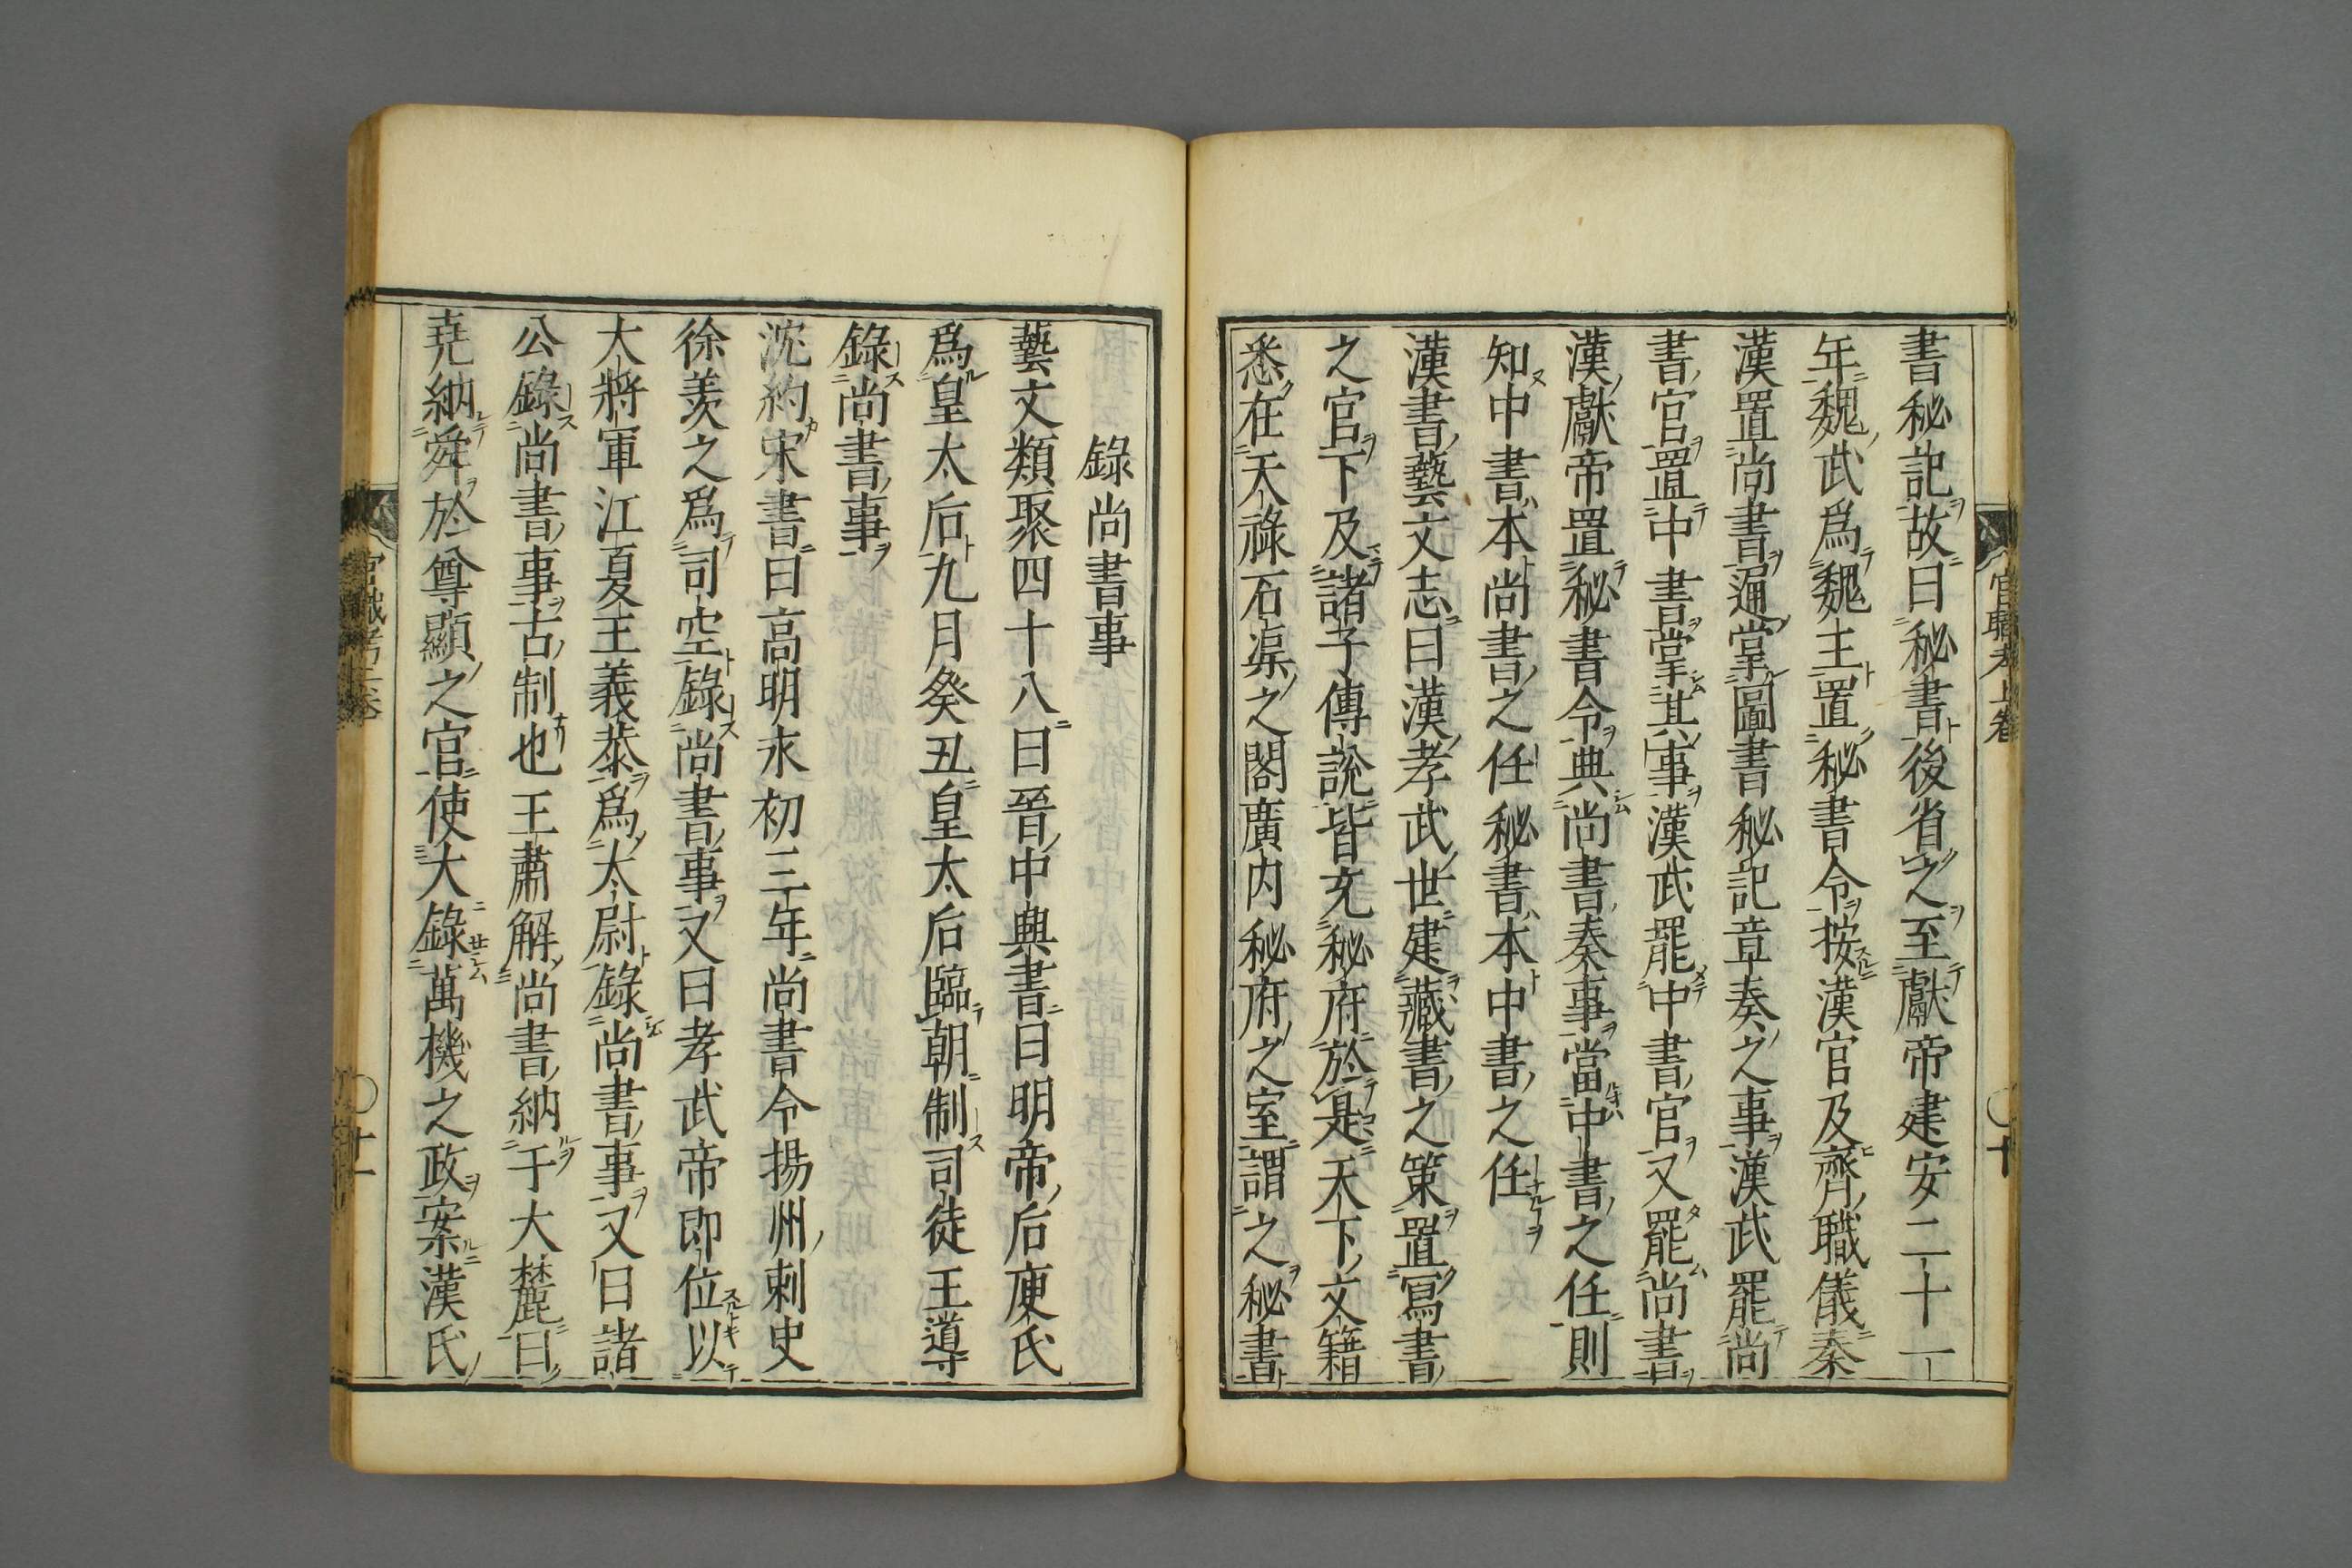 書秘記故曰秘書後省之至獻帝建安二十一
年魏武爲魏王置秘書令按漢官及齊職儀秦
漢置尚書通掌圖書秘記章奏之事漢武罷尚
書官置中書掌其事漢武罷中書官又罷尚書
漢獻帝置秘書令典尚書奏事當中書之任則
知中書本尚書之任秘書本中書之任
漢書藝文志曰漢孝武世建藏書之策置寫書
之官下及諸子傳說皆充秘府於是天下文籍
悉在天祿石渠之閣廣内秘府之室謂之秘書
官職考上卷
〇十
錄尚書事
藝文類聚四十八曰晉中興書曰明帝后庾氏
爲皇太后九月癸丑皇太后臨朝制司徒王導
錄尚書事
沈約宋書曰高明永初三年尚書令揚州刺史
徐羨之爲司空錄尚書事又曰孝武帝即位以
大將軍江夏王義恭爲太尉錄尚書事又曰諸
公錄尚書事古制也王肅解尚書納于大麓曰
堯納舜於尊顯之官使大錄萬機之政案漢氏
官職考上卷
〇十一